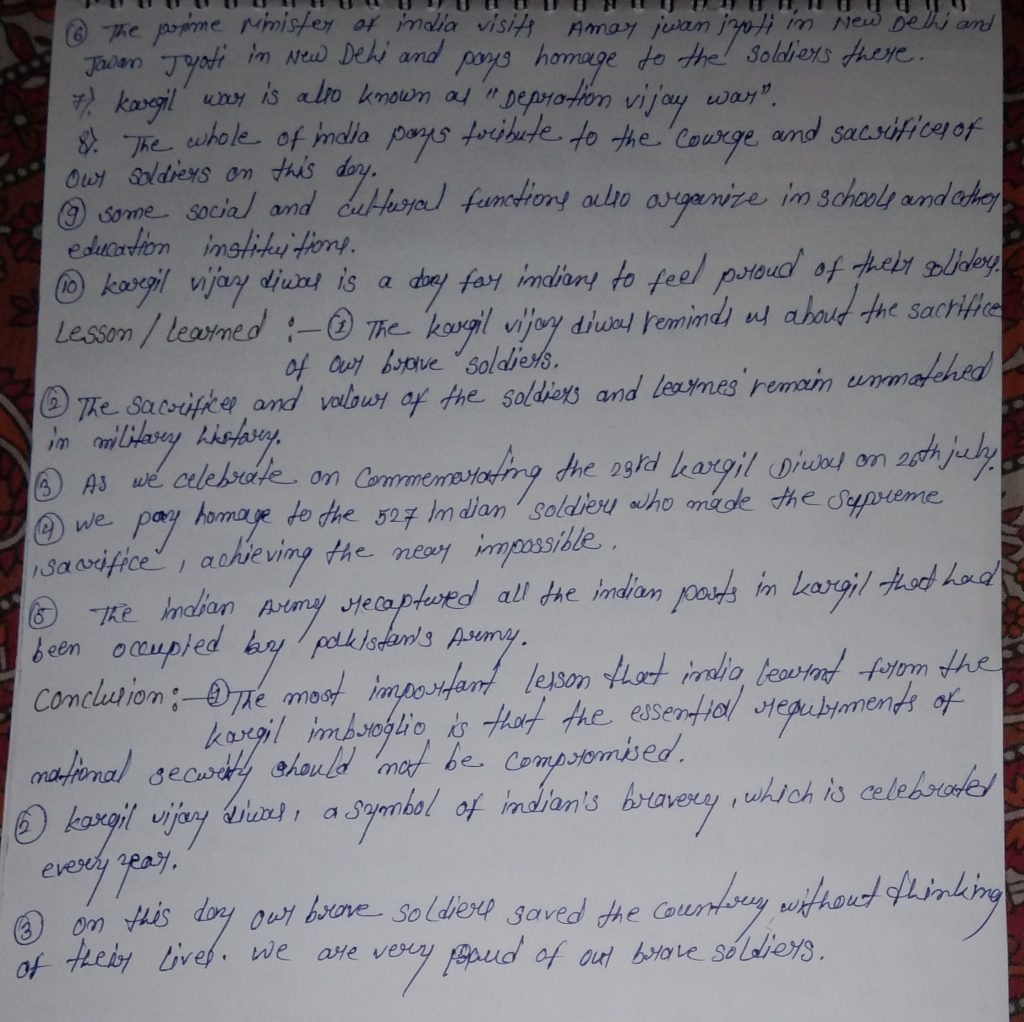 ⑥ The prime Minister of india visits Amar jwan jyoti in New Delhi and
Jawan Jyoti in New Dehi and pays homage to the soldiers there.
7). kargil war is also known as "Depration vijay war".
8). The whole of india pays tribute to the courge and sacrifices of
our soldiers on this day.
⑨ some social and cultural functions also organize in schools and other
education instituitions.
⑩ kargil vijay diwas is a day for indians to feel proud of their soliders.
Lesson / learned :- ① The kargil vijay diwas reminds us about the sacrifice
of our brave soldiers.
② The sacrifices and valour of the soldiers and learnes remain unmatched
in military history.
③ As we celebrate on Commemorating the 23rd kargil Diwas on 26th july.
④ we pay homage to the 527 Indian soldiers who made the supreme
sacrifice, achieving the near impossible.
⑤ The indian Army recaptured all the indian posts in kargil that had
been occupied by pakistan's Army.
Conclusion :- ① The most important lesson that india learnt from the
kargil imbroglio is that the essential requirments of
national security should not be compromised.
② kargil vijay diwas, a symbol of indian's bravery, which is celebrated
every year.
③ on this day our brave soldiers saved the country without thinking
of their lives. we are very proud of our brave soldiers.